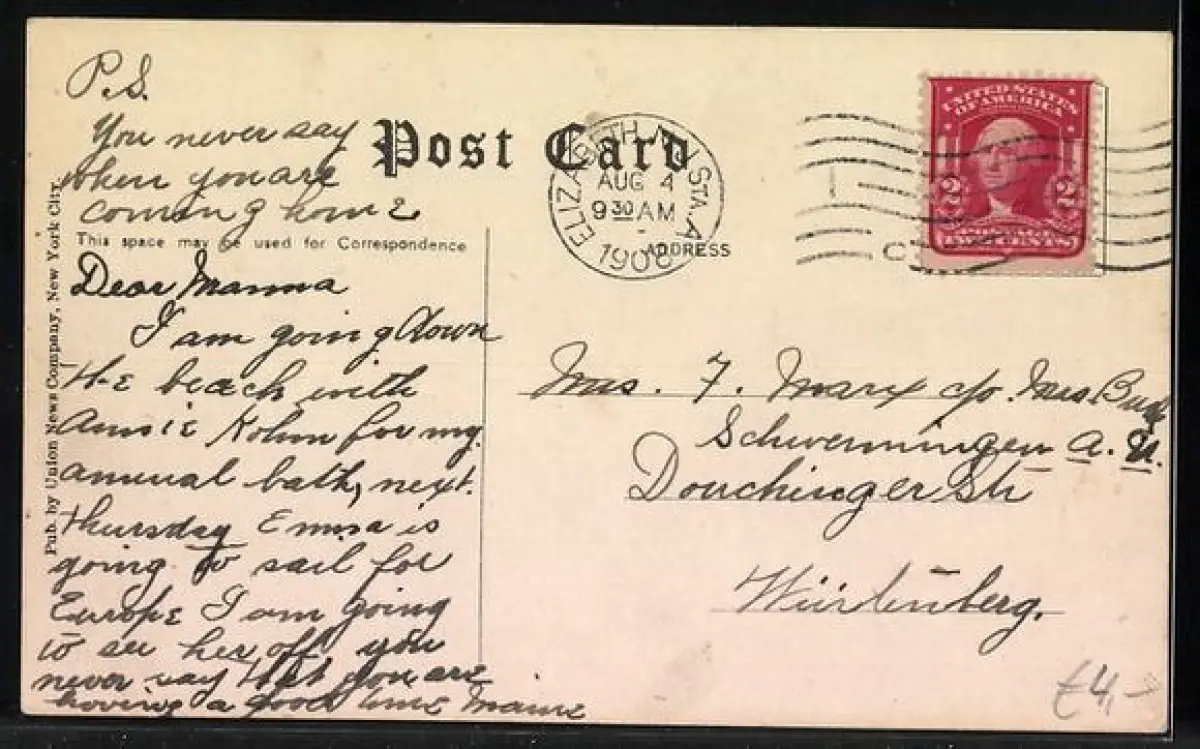 P.S.
You never say
when you are
coming home
Post Card
This space may be used for Correspondence
ADDRESS
Pub. by Union News Company, New York City.
ELIZABETH, N.J. STA. A
AUG 4
9 30 AM
1908
UNITED STATES
OF AMERICA
2 2
POSTAGE
TWO CENTS
Dear Mamma
I am going down
the beach with
Annie Kohm for my
annual bath, next
thursday Emma is
going to sail for
Europe I am going
to see her off you
never say that you are
having a good time Mame
Mrs. F. Marx c/o. Mrs
Schwenningen a. N.
Str
Würtenberg.
€4,-